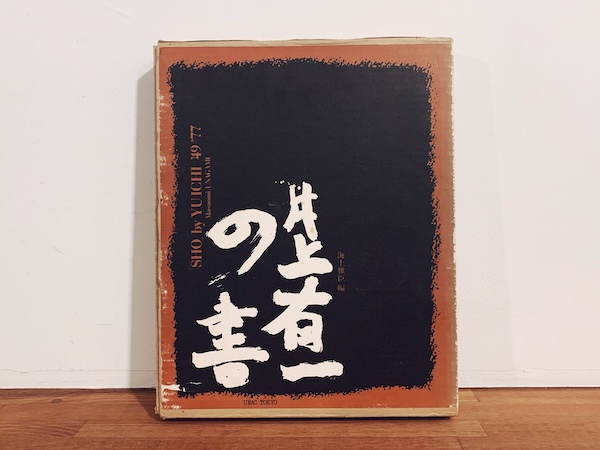 井上有一
の書
海上雅臣 編
SHO by YUICHI '49-'77
Masaomi UNAGAMI
UNAC TOKYO